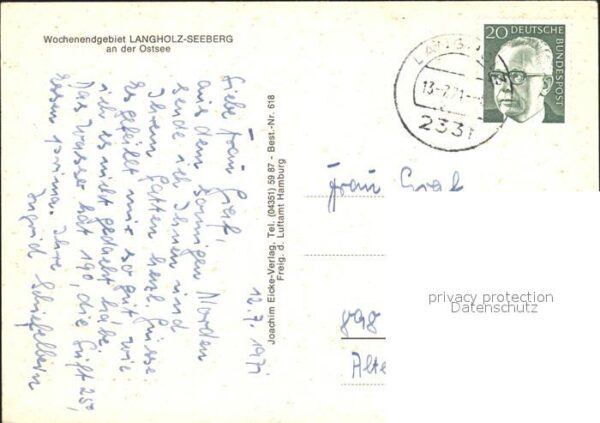 Wochenendgebiet LANGHOLZ-SEEBERG
an der Ostsee
20 DEUTSCHE
BUNDESPOST
13-7.71
2331
12.7.1971
Liebe Frau Graf,
aus dem sonnigen Norden
sende ich Ihnen und
Ihrem Gatten herzl. Grüsse.
Es gefällt mir so gut wie
ich es nicht gedacht habe.
Das Wasser hat 19°, die Luft 25°,
Essen prima. Ihre
Ingrid
Joachim Eicke-Verlag, Tel. (04351) 59 87 - Best.-Nr. 618
Freig. d. Luftamt Hamburg
Frau Graf
Alte
privacy protection
Datenschutz